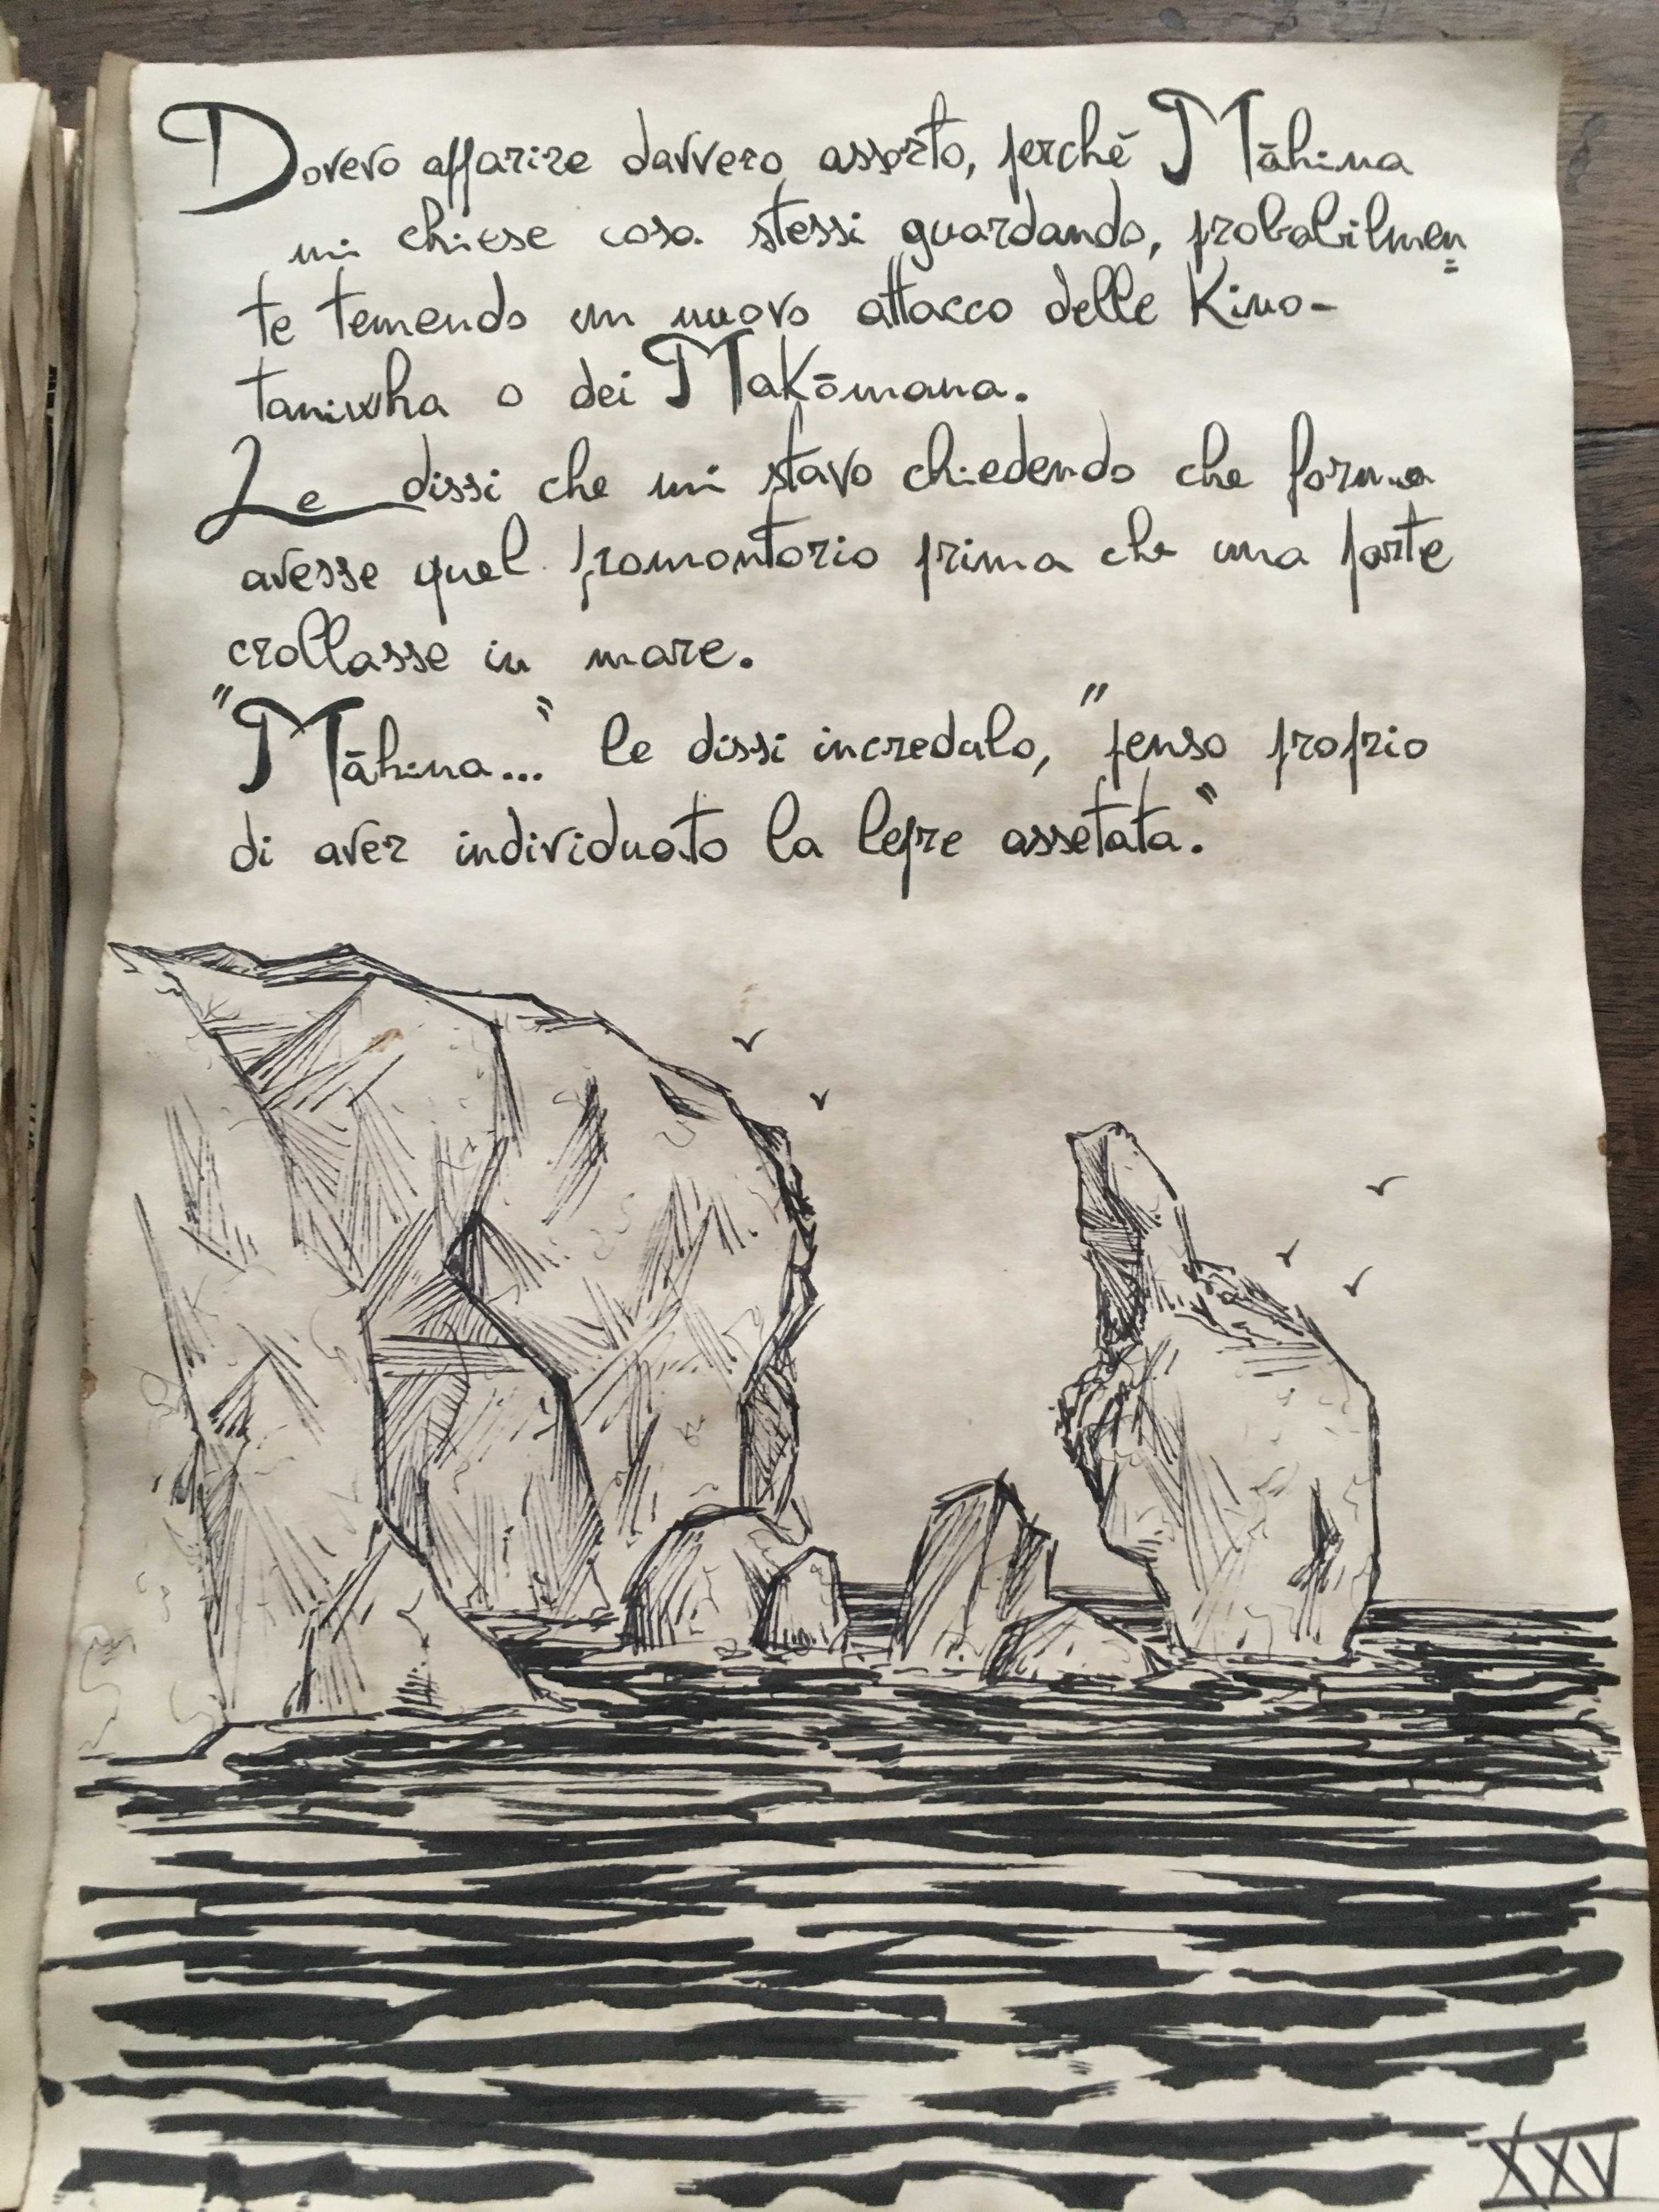 Dovevo apparire davvero assorto, perchē Māhina
mi chiese cosa stessi guardando, probabilmen=
te temendo un nuovo attacco delle Kino-
taniwha o dei Makōmana.
Le dissi che mi stavo chiedendo che forma
avesse quel promontorio prima che una parte
crollasse in mare.
"Māhina..." le dissi incredulo, "penso proprio
di aver individuato la lepre assetata."
XXV